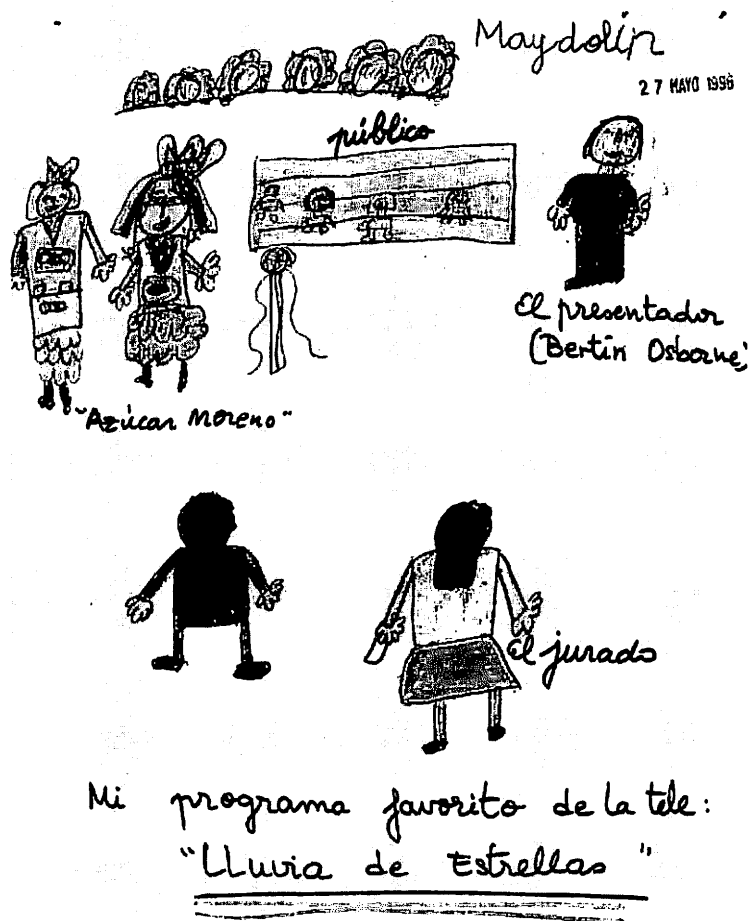 Maydolin
27 MAYO 1996
público
El presentador
(Bertin Osborne)
"Azúcar Moreno"
El jurado
Mi programa favorito de la tele:
"LLuvia de Estrellas"